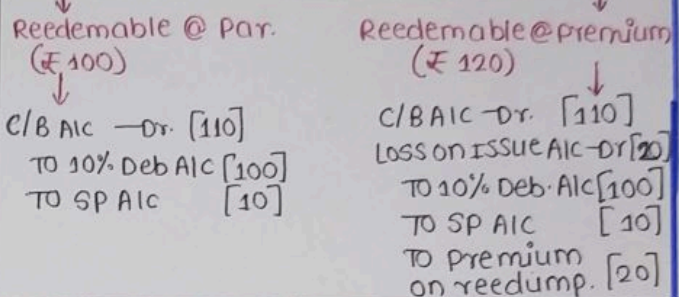 Reedemable @ Par.
(₹ 100)
C/B A/C —Dr. [110]
TO 10% Deb A/C [100]
TO SP A/C [10]
Reedemable @ premium
(₹ 120)
C/B A/C —Dr. [110]
LOSS ON ISSUE A/C -Dr [20]
TO 10% Deb. A/C [100]
TO SP A/C [10]
TO Premium
on reedump. [20]